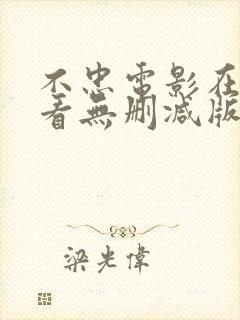 不忠電影在
看無刪減版
梁光偉